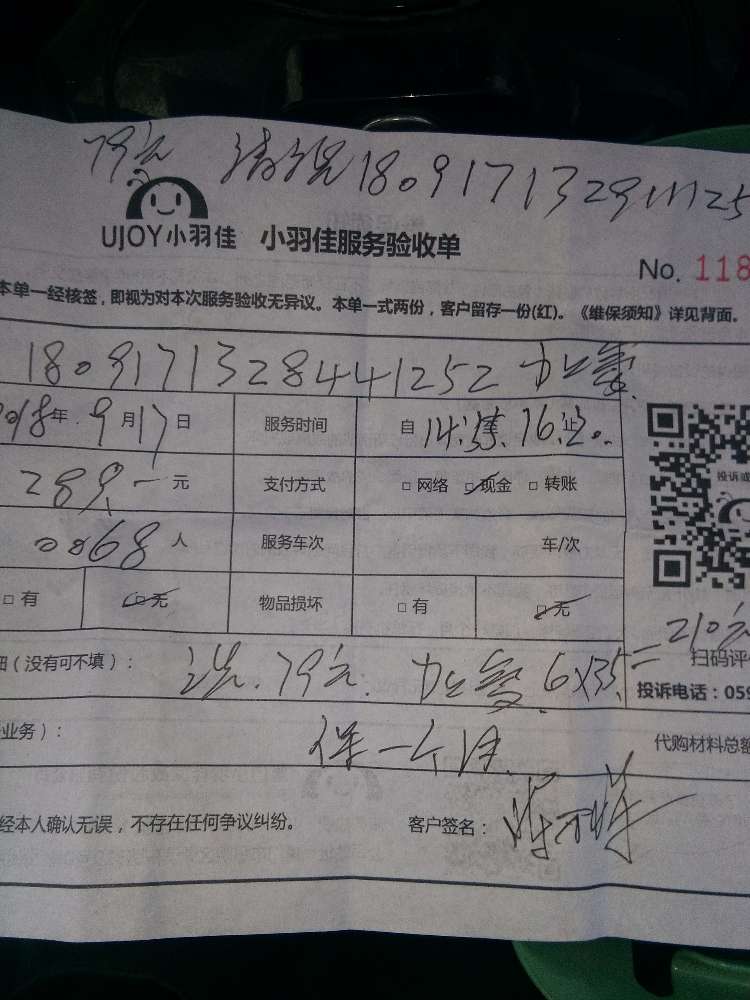 79元 清洗180917132911125
UJOY小羽佳 小羽佳服务验收单
No. 118
本单一经核签，即视为对本次服务验收无异议。本单一式两份，客户留存一份(红)。《维保须知》详见背面。
1809171328441252 加氟
018年 9月17日 服务时间 自 14: 至 16: 止
289.一元 支付方式 □网络 □现金 □转账
0068人 服务车次 车/次
□有 □无 物品损坏 □有 □无
投诉或
细（没有可不填）： 清洗.79元. 加氟 6X35=210元
扫码评价
投诉电话：059
业务）： 保一个月
代购材料总额
经本人确认无误，不存在任何争议纠纷。 客户签名：